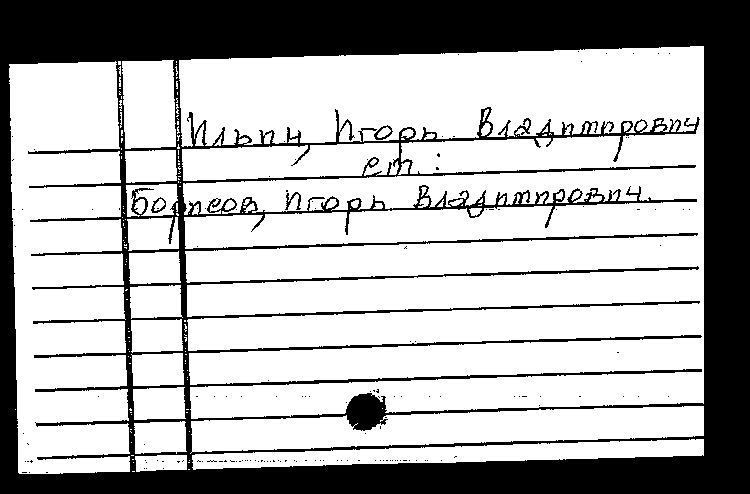 Ильин, Игорь Владимирович
см.:
Борисов, Игорь Владимирович.